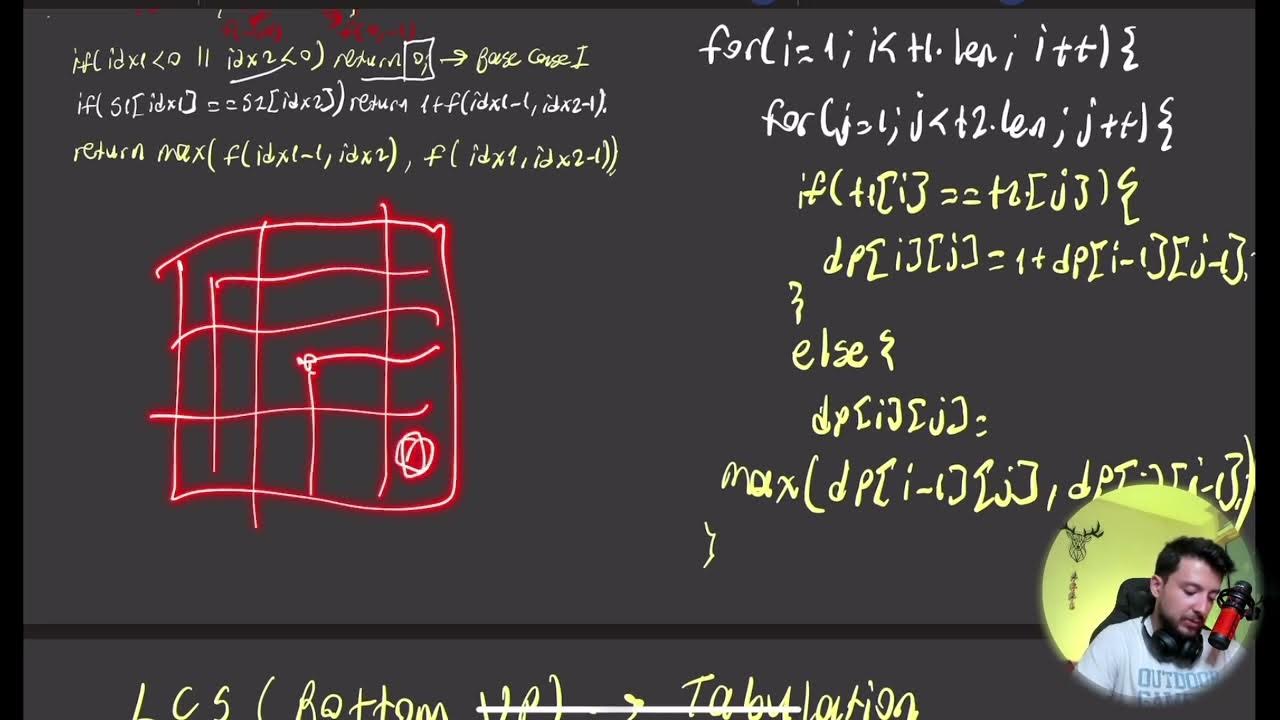 if(idx1<0 || idx2<0) return 0; → Base Case I
if(S1[idx1]==S2[idx2]) return 1+f(idx1-1, idx2-1).
return max(f(idx1-1, idx2), f(idx1, idx2-1));
for(i=1; i<t1.len; i++){
for(j=1; j<t2.len; j++){
if(t1[i]==t2[j]){
dp[i][j]=1+dp[i-1][j-1];
}
else{
dp[i][j]=
max(dp[i-1][j], dp[i][j-1];)
}
LCS (Bottom UP) → Tabulation
OUTDOOR